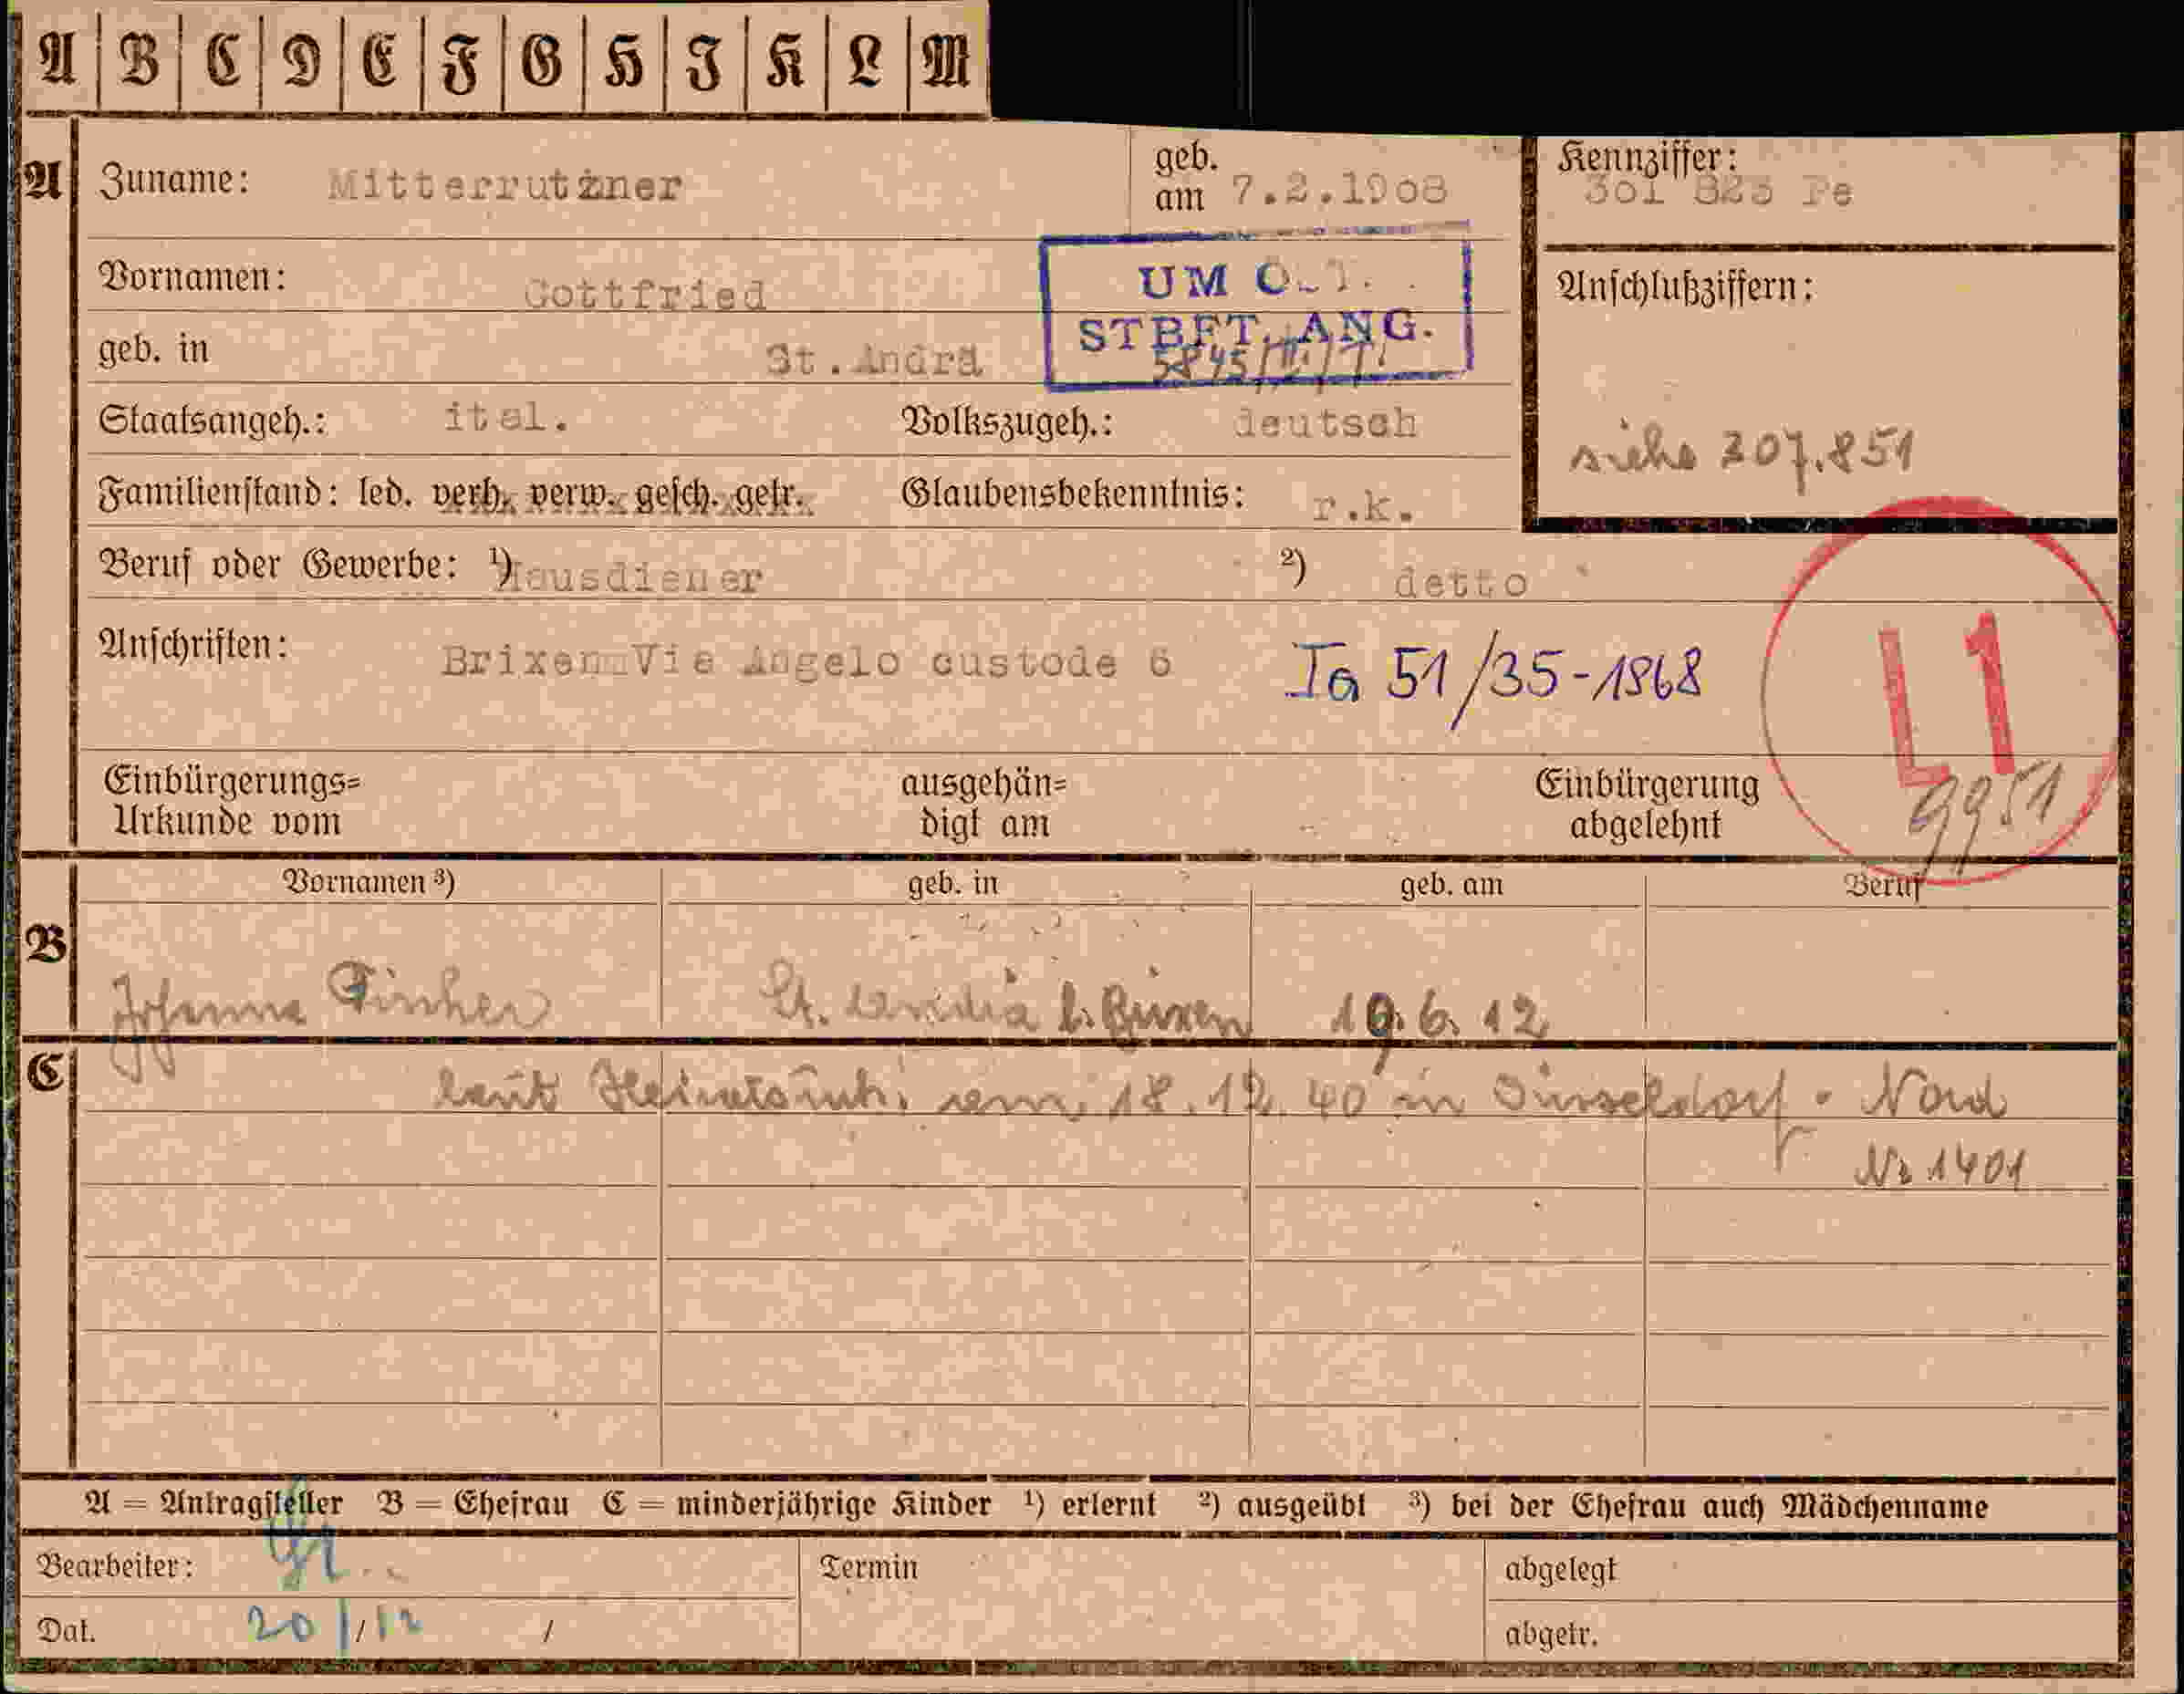 A B C D E F G H I K L M
A Zuname: Mitterrutzner geb. am 7.2.1908 Kennziffer: 301 823 Pe
Vornamen: Gottfried
UM
STBFT. ANG.
5845/II/1
Anschlußziffern:
geb. in St.Andrä
Staatsangeh.: ital. Volkszugeh.: deutsch
siehe 207.851
Familienstand: led. verh. verw. gesch. getr. Glaubensbekenntnis: r.k.
Beruf oder Gewerbe: 1) Hausdiener 2) detto
Anschriften: Brixen Via Angelo custode 6 Ia 51/35-1868
L1
9951
Einbürgerungs= ausgehän= Einbürgerung
Urkunde vom digt am abgelehnt
Vornamen 3) geb. in geb. am Beruf
B Johanna Fischer St. b. Brixen 19.6.12
C laut Heiratsurk. vom 18.12.40 in Düsseldorf - Nord
Nr 1401
A = Antragsteller B = Ehefrau C = minderjährige Kinder 1) erlernt 2) ausgeübt 3) bei der Ehefrau auch Mädchenname
Bearbeiter: Termin abgelegt
Dat. 20/12 / abgetr.